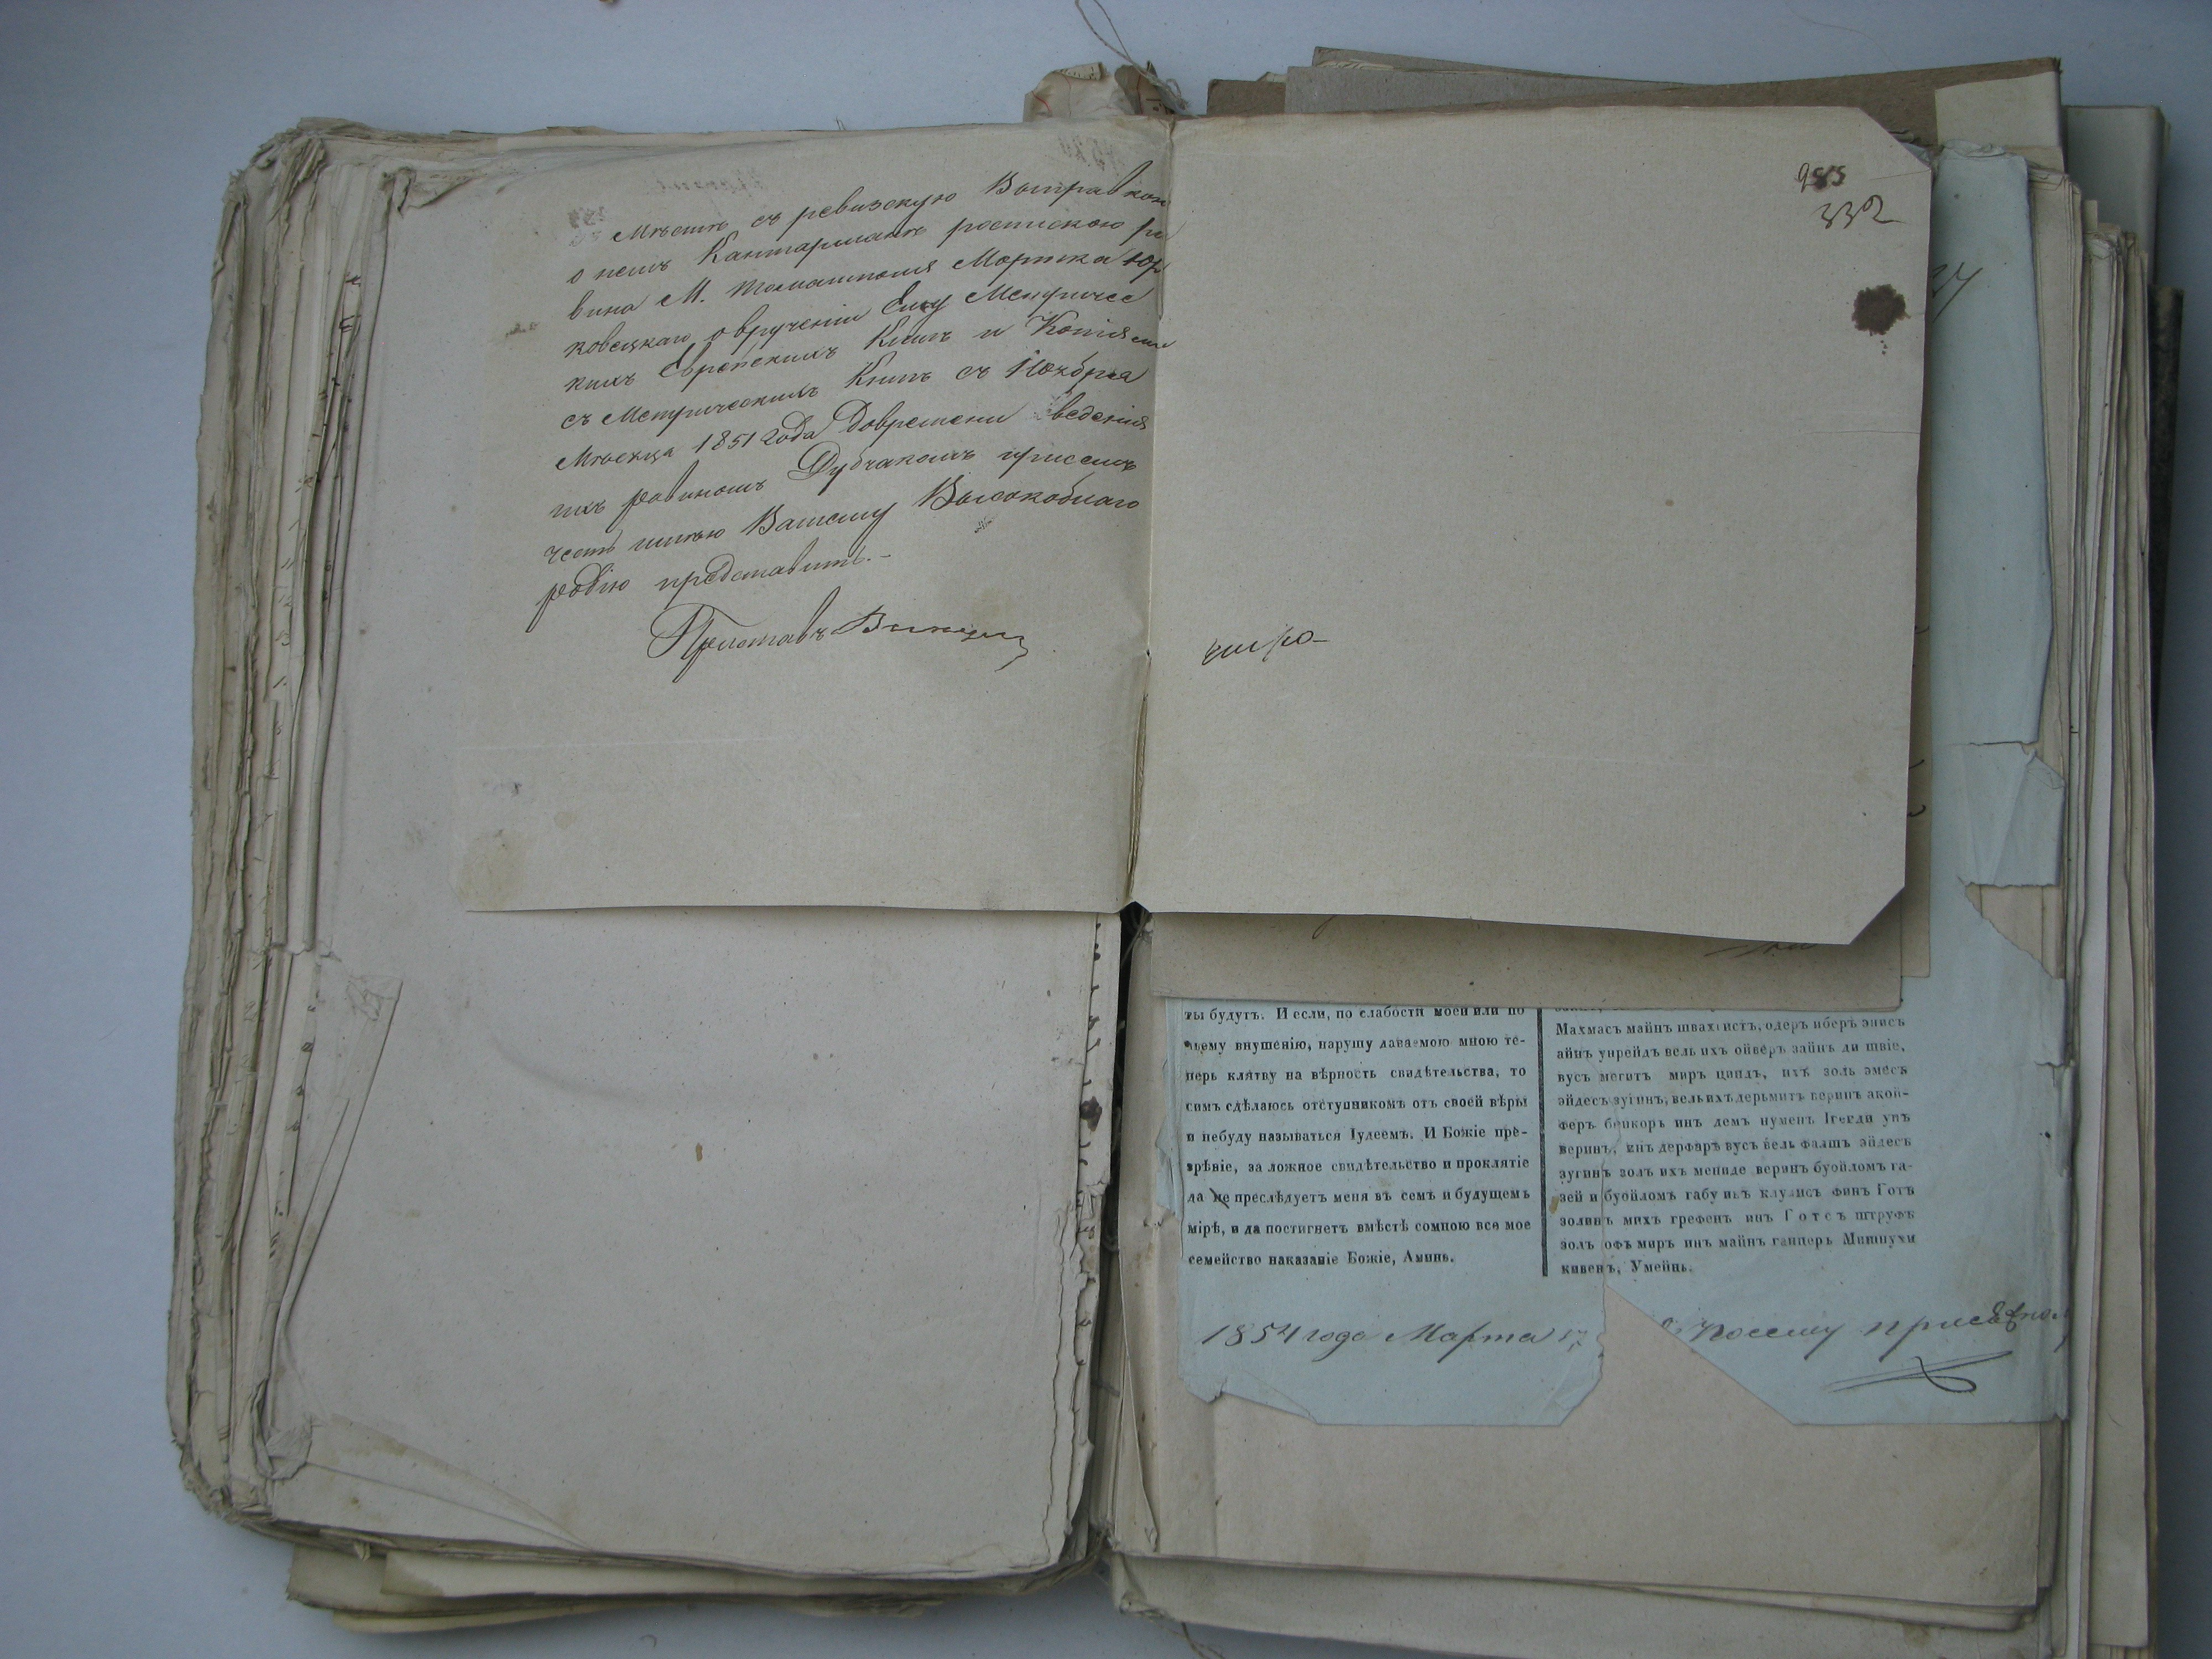 Мѣстѣ съ ревизскую Выправкою
о немъ Кантарманъ роспискою ра
вина М. Томашполя Мортка Юр
ковецкаго о врученіи Ему Метричес
кихъ Еврейскихъ Книгъ и Копіями
съ Метрическихъ Книгъ съ Ноября
Мѣсяца 1851 года до времени ведения
ихъ равиномъ Дубчакомъ присемъ
честь имѣю Вашему Высокоблаго
родію представить.-
Приставъ
332
ты будутъ. И если, по слабости моей или по
чьему внушенію, нарушу даваемою мною те-
перь клятву на вѣрность свидѣтельства, то
симъ сдѣлаюсь отступникомъ отъ своей вѣры
и небуду называться Іудеемъ. И Божіе пре-
зрѣніе, за ложное свидѣтельство и проклятіе
да не преслѣдуетъ меня въ семъ и будущемъ
мірѣ, и да постигнетъ вмѣстѣ сомною все мое
семейство наказаніе Божіе, Аминь.
Махмасъ майнъ швахгистъ, одеръ иберъ энисъ
айнъ унрейдъ вель ихъ ойверъ зайнъ ди швіе,
вусъ мегитъ миръ циндъ, ихъ золь эмесъ
эйдесъ зугинъ, вель ихъ дерьмитъ веринъ акой-
феръ беикоръ инъ демъ нуменъ Ігегди унъ
веринъ, инъ дерфаръ вусъ вель фалшъ эйдесъ
зугинъ золъ ихъ мениде веринъ буойломъ га-
зей и буойломъ габу инъ клулисъ финъ Готъ
золинъ михъ грефенъ инъ Готсъ штруфъ
золъ офъ миръ инъ майнъ ганцеръ Мишпухи
кивенъ, Умейнъ.
1854 года Марта 17
посему присяжном